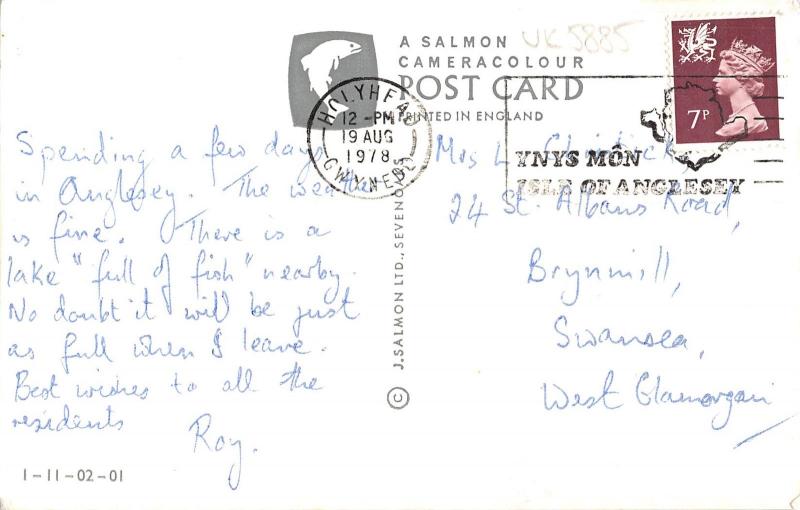 A SALMON
CAMERACOLOUR
POST CARD
PRINTED IN ENGLAND
UK5885
7P
HOLYHEAD
12 -PM
19 AUG
1978
GWYNEDD
YNYS MÔN
ISLE OF ANGLESEY
Spending a few days
in Anglesey. The weather
is fine. There is a
lake "full of fish" nearby.
No doubt it will be just
as full when I leave.
Best wishes to all the
residents
Roy.
1-11-02-01
© J.SALMON LTD., SEVENOAKS
Mrs L.
24 St. Albans Road,
Brynmill,
Swansea,
West Glamorgan